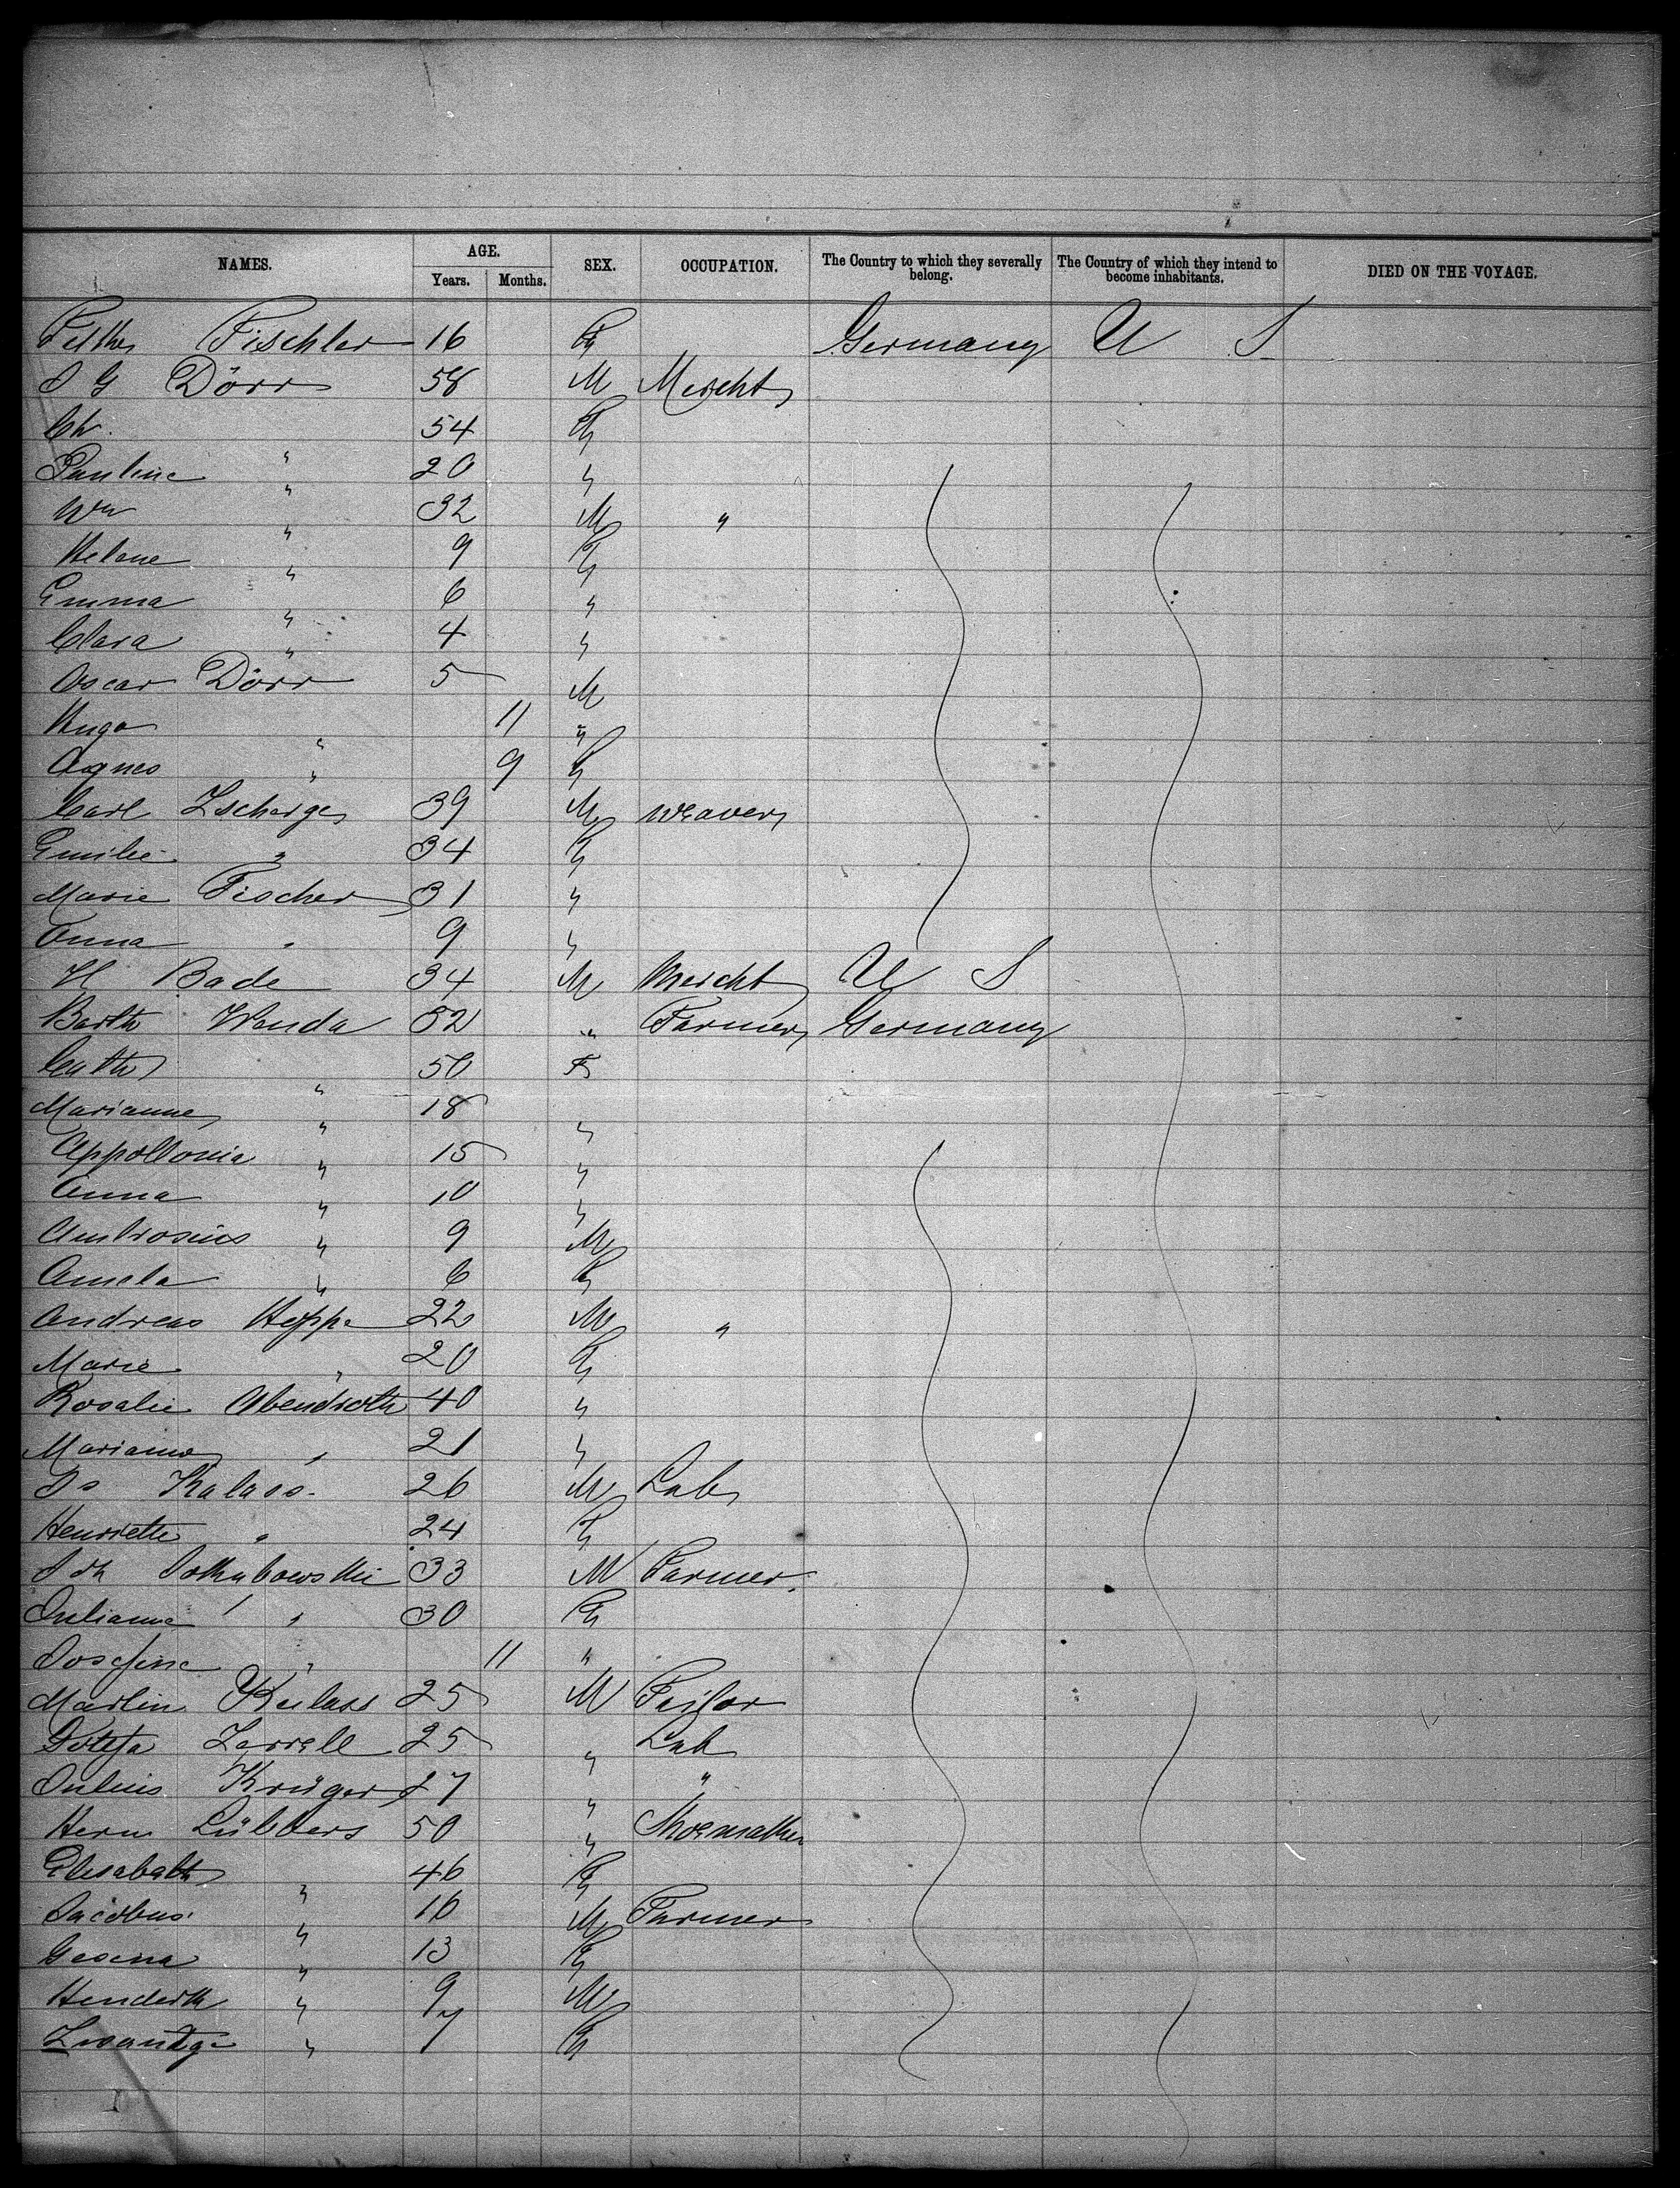 NAMES. AGE. SEX. OCCUPATION. The Country to which they severally belong. The Country of which they intend to become inhabitants. DIED ON THE VOYAGE.
Years. Months.
Fischler 16 F Germany U S
J G Dörr 58 M Mercht
Chr. " 54 F
Pauline " 20 "
Wm " 32 M "
Helane " 9 F
Emma " 6 "
Clara " 4 "
Oscar Dörr 5 M
Hugo " 11 "
Agnes " 9 F
Carl Zscherge 39 M weaver
Emilie " 34 F
Marie Fischer 31 "
Anna " 9 "
H Bade 34 M Mercht U S
Barth Wenda 52 " Farmer Germany
Cath " 50 F
Marianne " 18 "
Appollonia " 15 "
Anna " 10 "
Ambrosius " 9 M
Amela " 6 F
Andreas Heppe 22 M "
Marie " 20 F
Rosalie Abendroth 40 "
Marianne " 21 "
Kalass 26 M Lab
Henriette " 24 F
Joh 33 M Farmer
Julianna " 30 F
Josefine " 11 "
Martin Kulass 25 M
25 " Lab
Julius Krüger 27 " "
Herm Lübbers 50 " Shoemaker
Elisabeth " 46 F
Jacobus " 16 M Farmer
Gesena " 13 F
Henderk " 9 M
Zwantge " 7 F